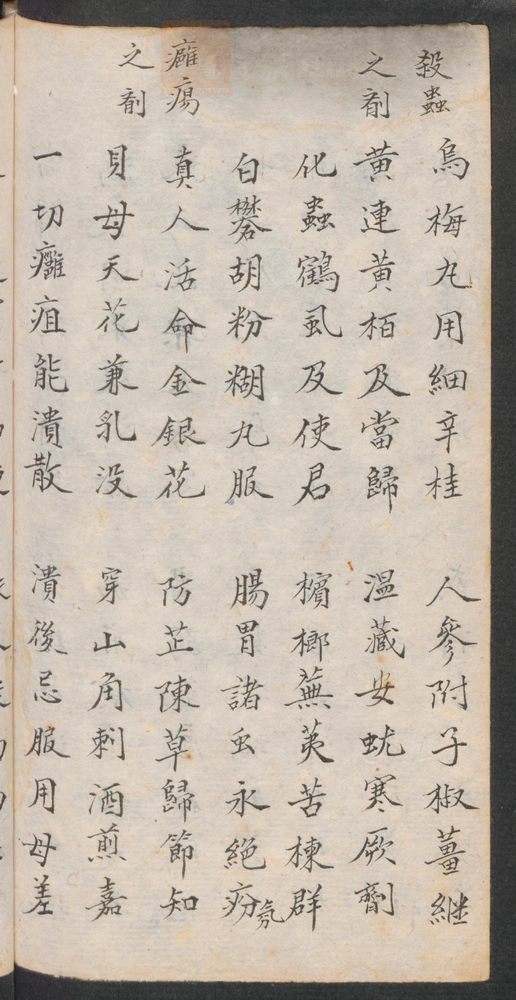 殺蟲
之劑
烏梅丸用細辛桂 人參附子椒薑継
黃連黃栢及當歸 温藏安蚘寒厥劑
化蟲鶴虱及使君 檳榔蕪荑苦楝群
白礬胡粉糊丸服 腸胃諸虫永絕氛
癰瘍
之劑
真人活命金銀花 防芷陳草歸節知
貝母天花兼乳没 穿山角刺酒煎嘉
一切癰疽能潰散 潰後忌服用毋差